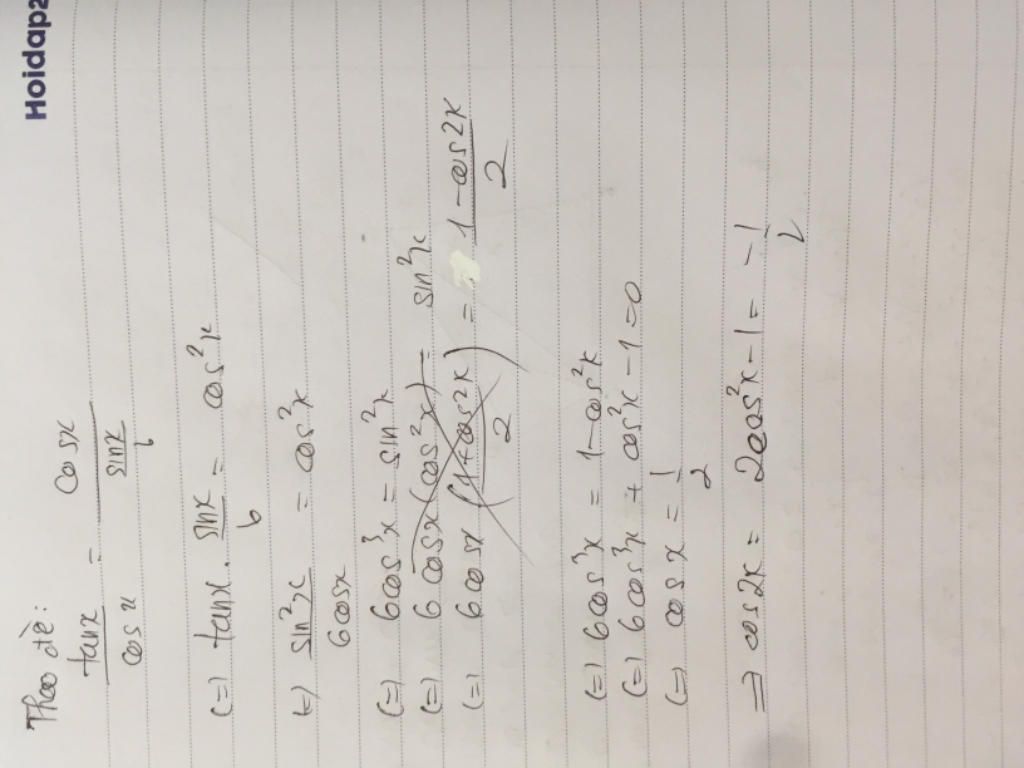 Hoidap2
Theo đề:
tanx/cosx = cosx/(sinx/6)
(=) tanx . sinx/6 = cos²x
(=) sin²x/6cosx = cos²x
(=) 6cos³x = sin²x
(=) 6cosx(cos²x) = sin²x
(=) 6cosx (1+cos2x/2) = 1-cos2x/2
(=) 6cos³x = 1-cos²x
(=) 6cos³x + cos²x - 1 = 0
(=) cosx = 1/2
⇒ cos2x = 2cos²x - 1 = -1/2